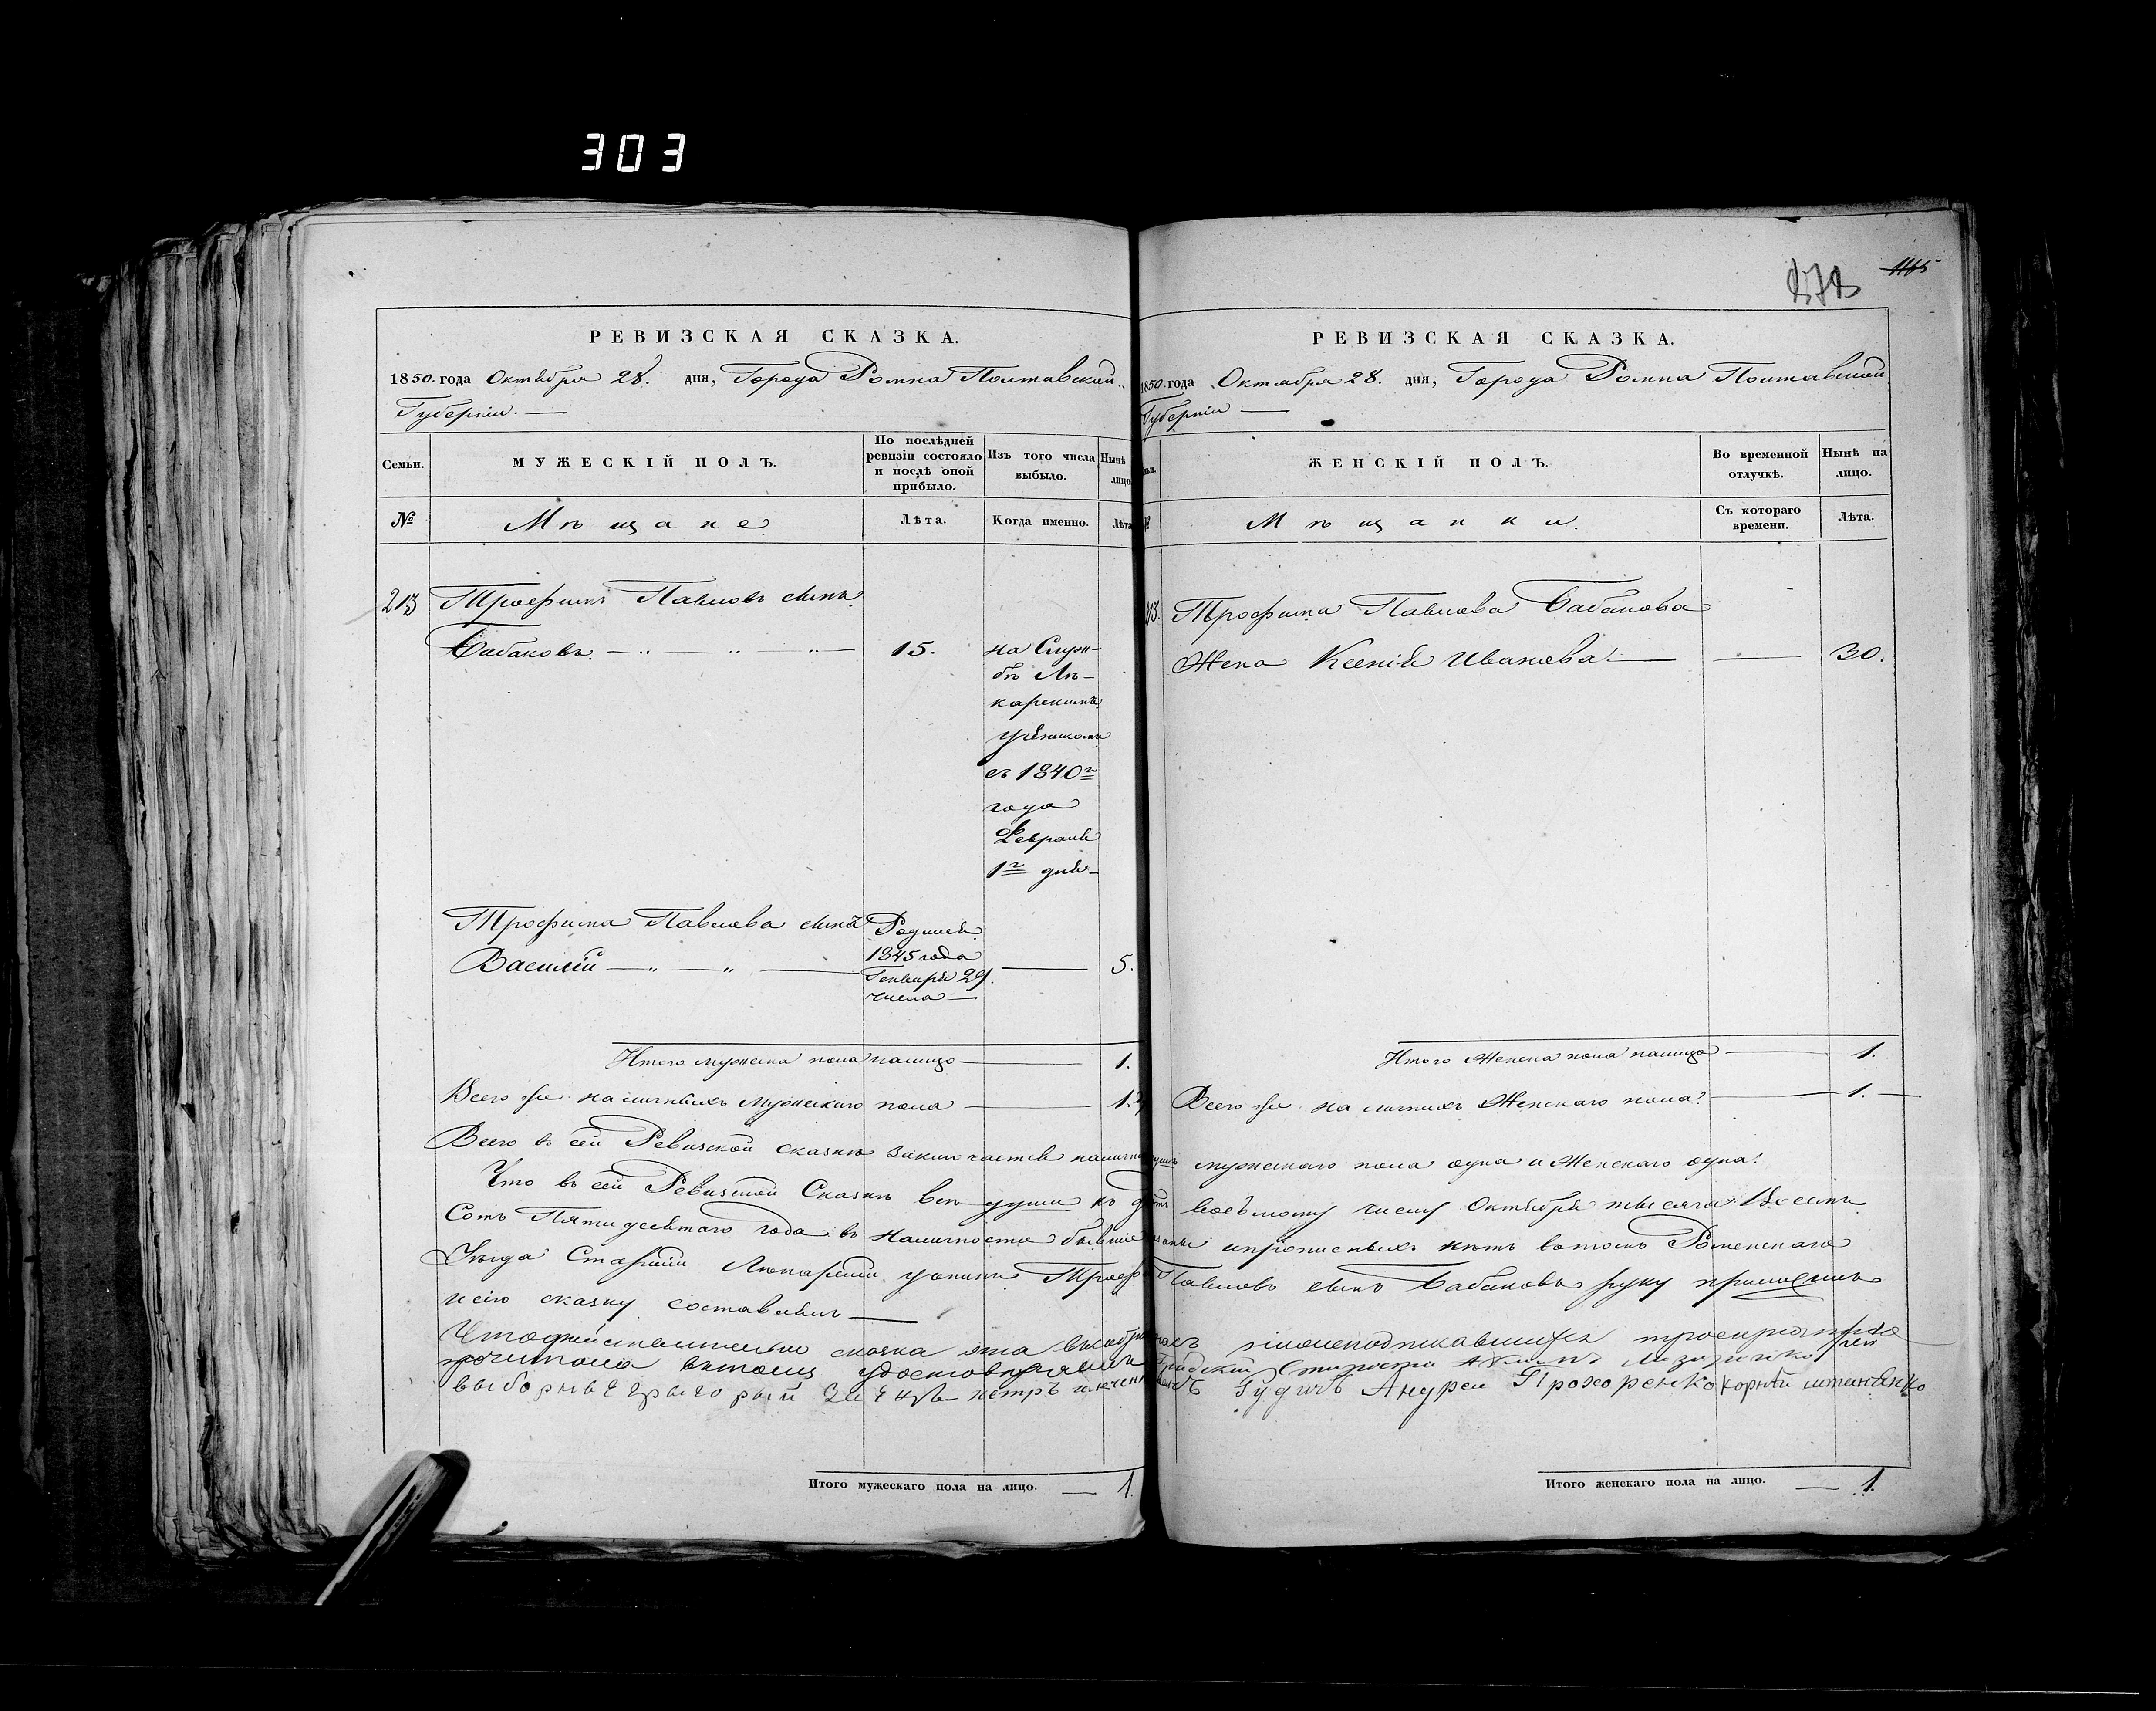 303
272
1115
РЕВИЗСКАЯ СКАЗКА.
1850. года Октября 28. дня, Города Ромна Полтавской
Губернiи.
Семьи.
МУЖЕСКIЙ ПОЛЪ.
По послѣдней ревизiи состояло и послѣ оной прибыло.
Изъ того числа выбыло.
Нынѣ лицо
№
Мѣщане
Лѣта.
Когда именно.
Лѣта
213
Трофимъ Павловъ сынъ
Бабаковъ.
15.
на Служ-
бѣ Лѣ-
карскимъ
ученикомъ
съ 1840го
года
Февраля
1го дня
Трофима Павлова сынъ
Василiй
Родился
1845 года
Генваря 29
числа
5.
Итого мужеска пола налицо 1.
Всего же наличныхъ мужескаго пола 1.
РЕВИЗСКАЯ СКАЗКА.
1850. года Октября 28. дня, Города Ромна Полтавской
Губернiи
ЖЕНСКIЙ ПОЛЪ.
Во временной отлучкѣ.
Нынѣ на лицо.
№
Мѣщанки.
Съ котораго времени.
Лѣта.
213.
Трофима Павлова Бабакова
Жена Ксенiя Иванова 30.
Итого Женска пола налицо 1.
Всего же наличныхъ Женскаго пола 1.
Всего въ сей Ревизской сказкѣ заключается душъ мужескаго пола одна и Женскаго одна.
Что въ сей Ревизской Сказкѣ всѣ души къ восьмому числу Октября тысяча Восемь
Сотъ Пятидесятаго года въ наличности бывшiе и прописныхъ нѣтъ въ томъ Роменскаго
Уѣзда Старшiй Лѣкарскiй ученикъ Павловъ сынъ Бабаковъ руку приложилъ
и сiю сказку составилъ
сказка эта
въ томъ удостовѣряемъ
выборные Петръ Андрей Прохоренко Корнѣй
Итого мужескаго пола на лицо. 1.
Итого женскаго пола на лицо. 1.